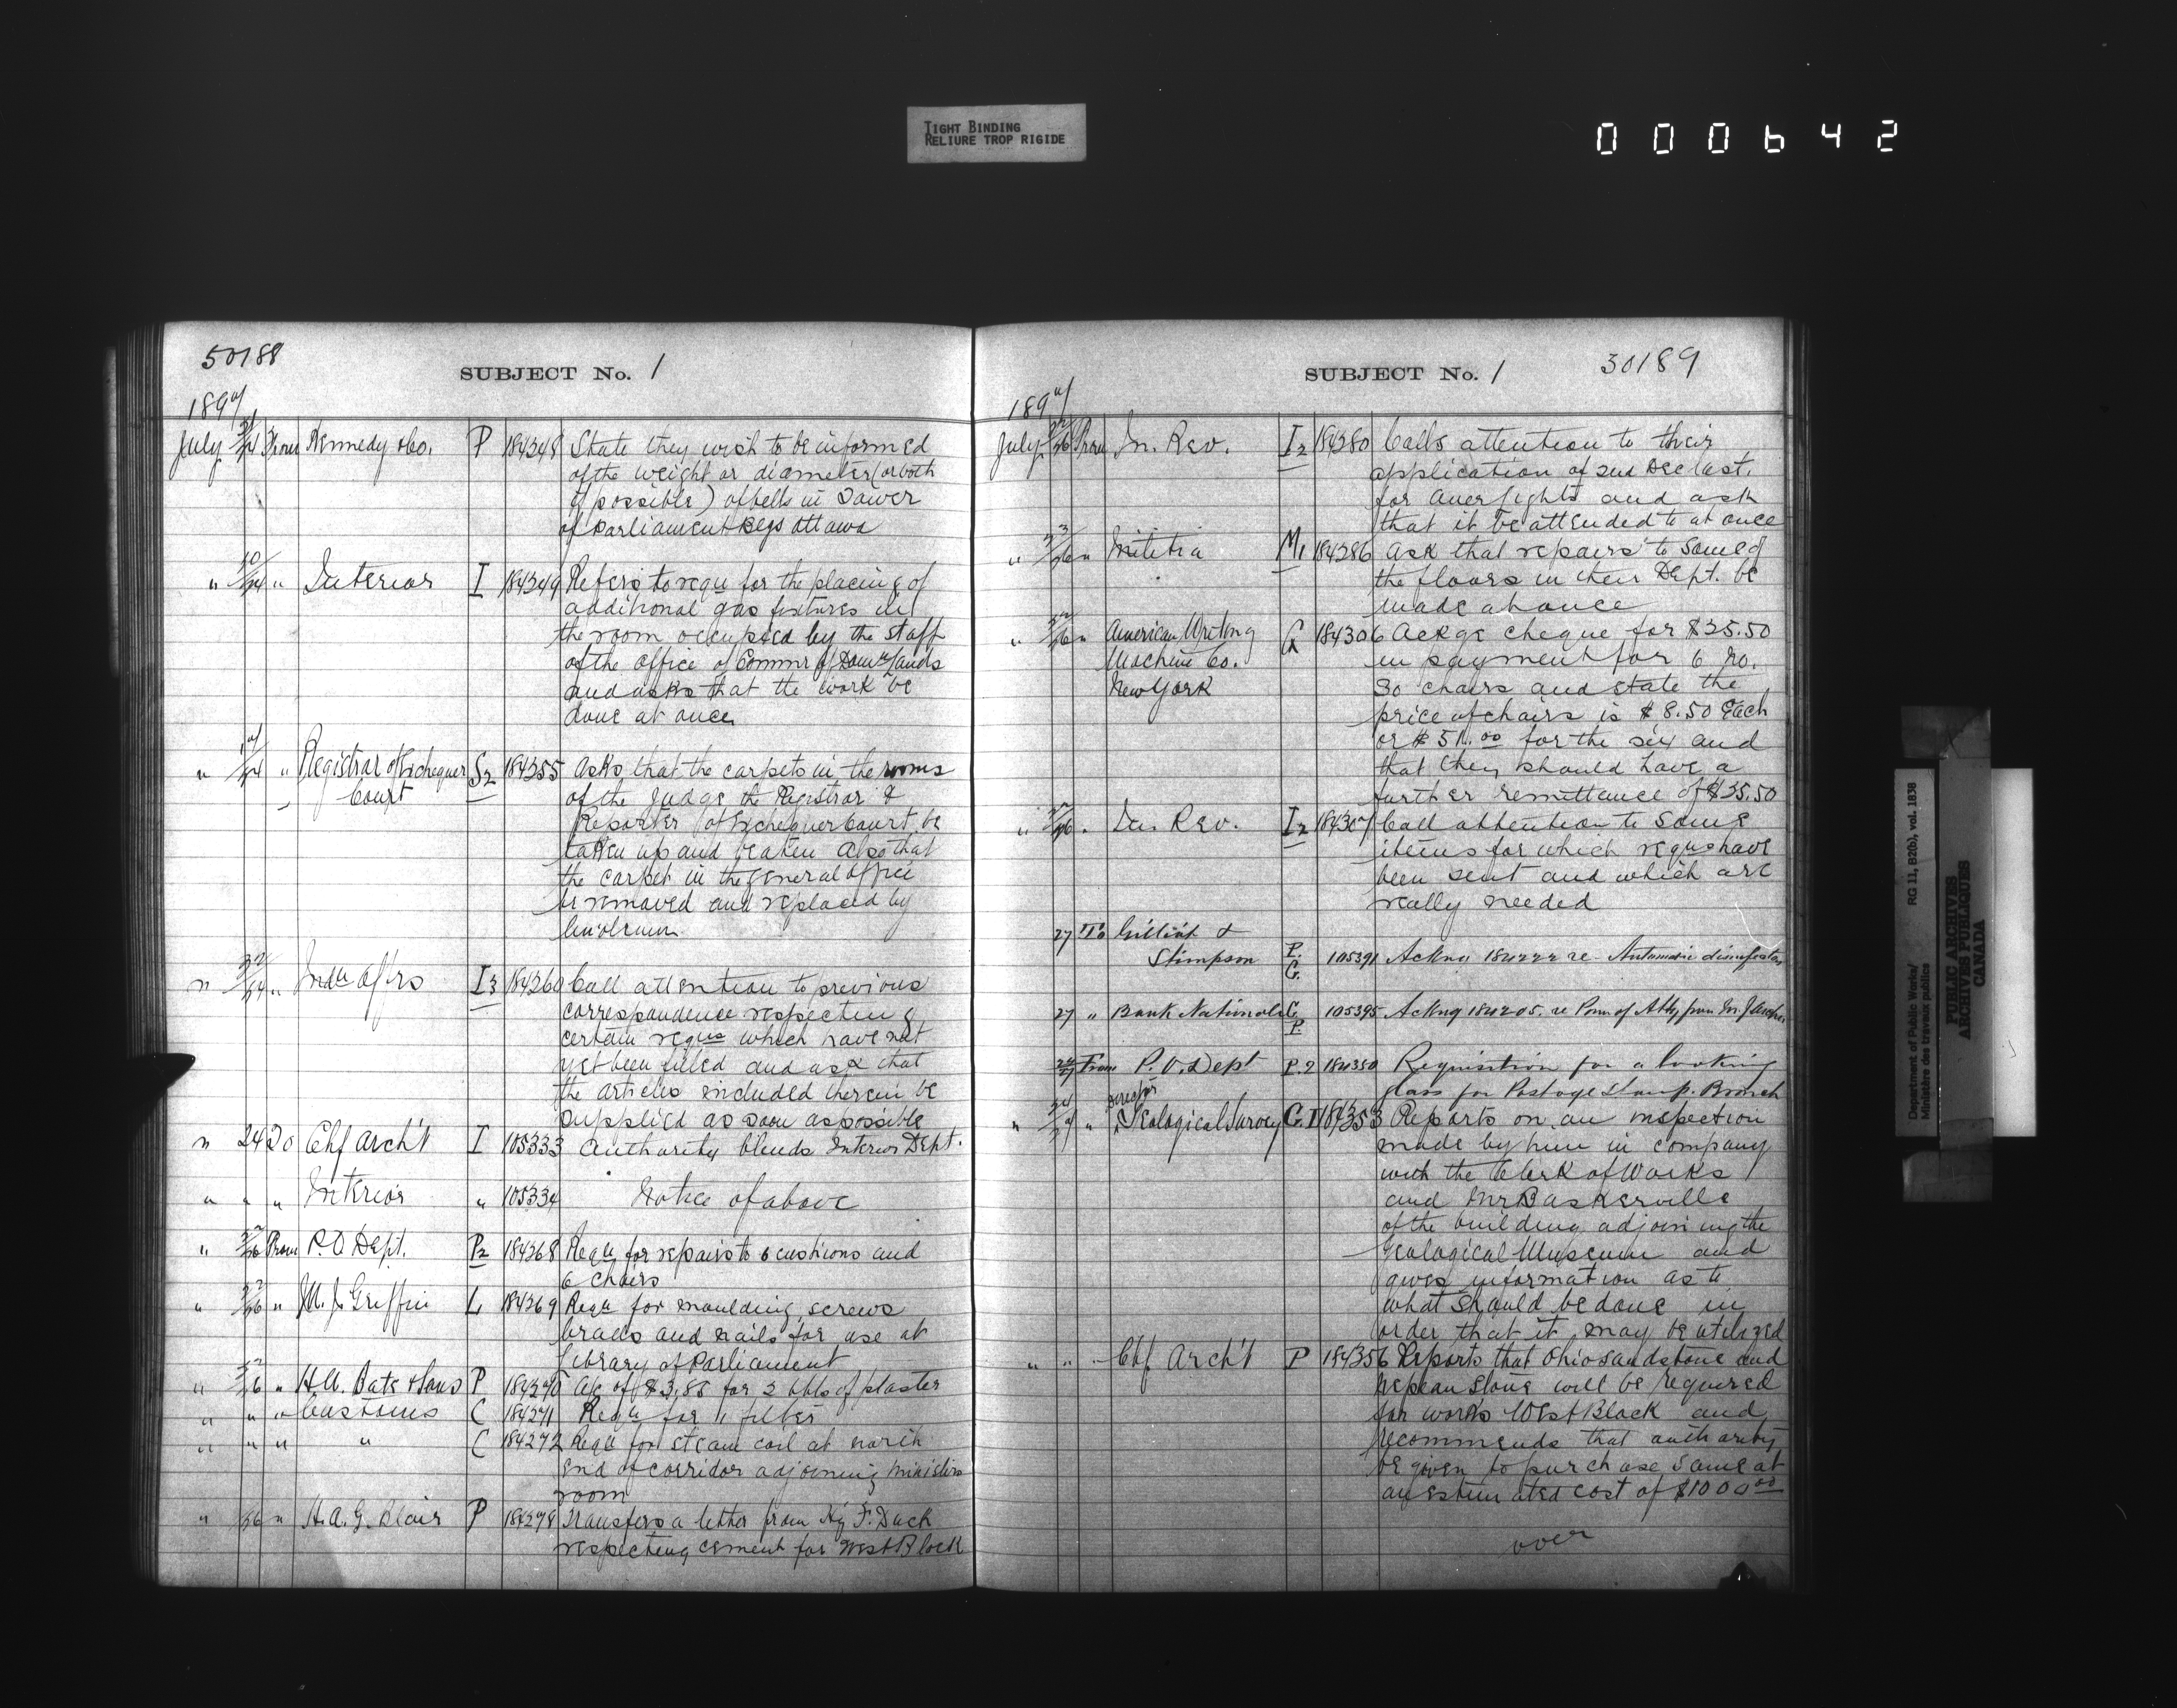 TIGHT BINDING
RELIURE TROP RIGIDE
000642
50188
SUBJECT No. 1
1897
July 21/24 From Kennedy & Co. P 184248 State they wish to be informed
of the weight or diameter (or both
if possible) of bells in Tower
of Parliament Bdgs Ottawa
" " Interior I 184249 Refers to requ for the placing of
additional gas fixtures in
the room occupied by the staff
of the office of Commr of Domn lands
and asks that the work be
done at once
" " Registrar of Exchequer S2 184255 Asks that the carpets in the rooms
Court of the Judge the Registrar &
Reporter of Exchequer Court be
taken up and beaten also that
the carpet in the general office
is removed and replaced by
linoleum
" 22/24 " Indn Affrs I3 184260 Call attention to previous
correspondence respecting
certain requs which have not
yet been filled and ask that
the articles included therein be
supplied as soon as possible
" 24 To Chf Arch't I 105333 Authority blends Interior Dept.
" " " Interior " 105334 Notice of above
" From P.O. Dept. P2 184268 Requ for repairs to 6 cushions and
6 chairs
" " M. J. Griffin L 184269 Requ for moulding, screws
brads and nails for use at
Library of Parliament
" " H.N. Bate & Sons P 184270 a/c of $3.88 for 2 bbls of plaster
" " " Customs C 184271 Requ for 1 filter
" " " " C 184272 Requ for steam coil at north
end of corridor adjoining Ministers
room
" 26 " H.A.G. Blair P 184278 Transfers a letter from F. Dack
respecting cement for West Block
SUBJECT No. 1 30189
1897
July 22/26 From In. Rev. I2 184280 Calls attention to their
application of 2nd Dec last.
for and ask
that it be attended to at once
" 23/26 " Militia M1 184286 Ask that repairs to some of
the floors in their Dept. be
made at once
" " American Writing G 184306 Ackge cheque for $25.50
Machine Co. in payment for 6 No.
New York 30 chairs and state the
price of chairs is $8.50 each
or $51.00 for the six and
that they should have a
further remittance of $25.50
" " In. Rev. I2 184307 Call attention to some
items for which requs have
been sent and which are
really needed
27 To &
Stimpson P. G. 105391 Ackng 184222 re Automatic disinfector
27 " Bank Nationale C. P. 105395 Ackng 184205. re Powr of Atty from
From P.O. Dept P.2 184350 Requisition for a looking
glass for Postage Stamp Branch
Director
" " Geological Survey G.I 184353 Reports on an inspection
made by him in company
with the Clerk of Works
and Mr Baskerville
of the building adjoining the
Geological Museum and
gives information as to
what should be done in
order that it may be utilized
" " " Chf Arch't P 184356 Reports that Ohio sandstone and
Nepean stone will be required
for works West Block and
recommends that authority
be given to purchase same at
an estimated cost of $1000.00
over
Department of Public Works/
Ministère des travaux publics
RG 11, B2(b), vol. 1838
PUBLIC ARCHIVES
ARCHIVES PUBLIQUES
CANADA